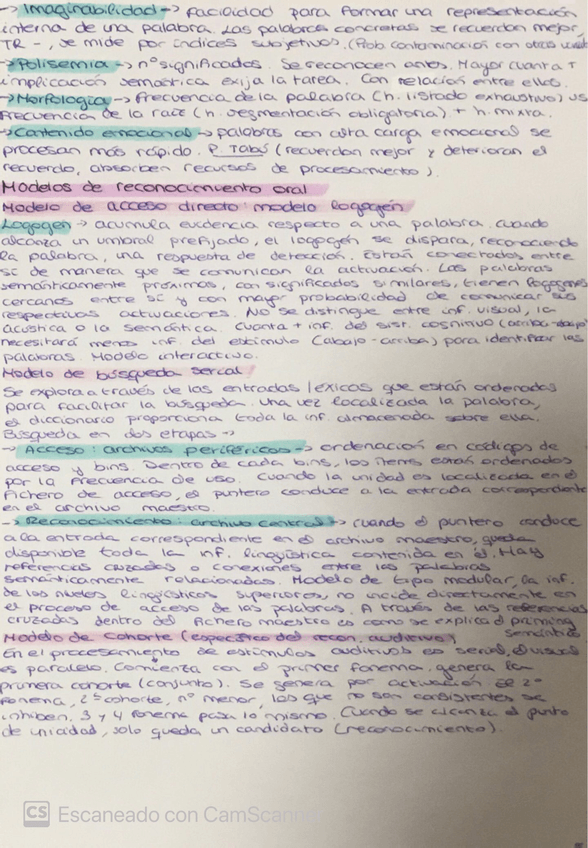 → Imaginabilidad → facilidad para formar una representación
interna de una palabra. Las palabras concretas se recuerdan mejor,
TR -, se mide por índices subjetivos. (Prob contaminación con otras
→ Polisemia → nº significados. Se reconocen antes. Mayor cuanta +
implicación semántica exija la tarea. Con relación entre ellos.
→ Morfología → frecuencia de la palabra (h. listado exhaustivo) vs
frecuencia de la raíz (h. segmentación obligatoria) + h. mixta.
→ Contenido emocional → palabras con alta carga emocional se
procesan más rápido. P. Tabús (recuerdan mejor y deterioran el
recuerdo, absorben recursos de procesamiento).
Modelos de reconocimiento oral
Modelo de acceso directo: modelo logogén
Logogen → acumula evidencia respecto a una palabra. Cuando
alcanza un umbral prefijado, el logogén se dispara, reconociendo
la palabra, una respuesta de detección. Están conectados entre
sí de manera que se comunican la activación. Las palabras
semánticamente próximas, con significados similares, tienen logogenes
cercanos entre sí y con mayor probabilidad de comunicar sus
respectivas activaciones. No se distingue entre inf. visual, la
acústica o la semántica. Cuanta + inf. del sist. cognitivo (arriba-abajo)
necesitará menos inf. del estímulo (abajo-arriba) para identificar las
palabras. Modelo interactivo.
Modelo de búsqueda serial
Se explora a través de las entradas léxicas que están ordenadas
para facilitar la búsqueda. Una vez localizada la palabra,
el diccionario proporciona toda la inf. almacenada sobre ella.
Búsqueda en dos etapas →
→ Acceso: archivos periféricos → ordenación en códigos de
acceso y bins. Dentro de cada bins, los ítems están ordenados
por la frecuencia de uso. Cuando la unidad es localizada en el
fichero de acceso, el puntero conduce a la entrada correspondiente
en el archivo maestro.
→ Reconocimiento: archivo central → cuando el puntero conduce
a la entrada correspondiente en el archivo maestro, queda
disponible toda la inf. lingüística contenida en él. Hay
referencias cruzadas o conexiones entre las palabras
semánticamente relacionadas. Modelo de tipo modular, la inf.
de los niveles lingüísticos superiores, no incide directamente en
el proceso de acceso de las palabras. A través de las referencias
cruzadas dentro del fichero maestro es como se explica el priming
semántico
Modelo de Cohorte (específico del recon. auditivo)
En el procesamiento de estímulos auditivos es serial, el visual
es paralelo. Comienza con el primer fonema, genera la
primera cohorte (conjunto). Se genera por activación el 2º
fonema, 2ª cohorte, nº menor, las que no son consistentes se
inhiben. 3 y 4 fonema pasa lo mismo. Cuando se alcanza el punto
de unicidad, solo queda un candidato (reconocimiento).
CS Escaneado con CamScanner